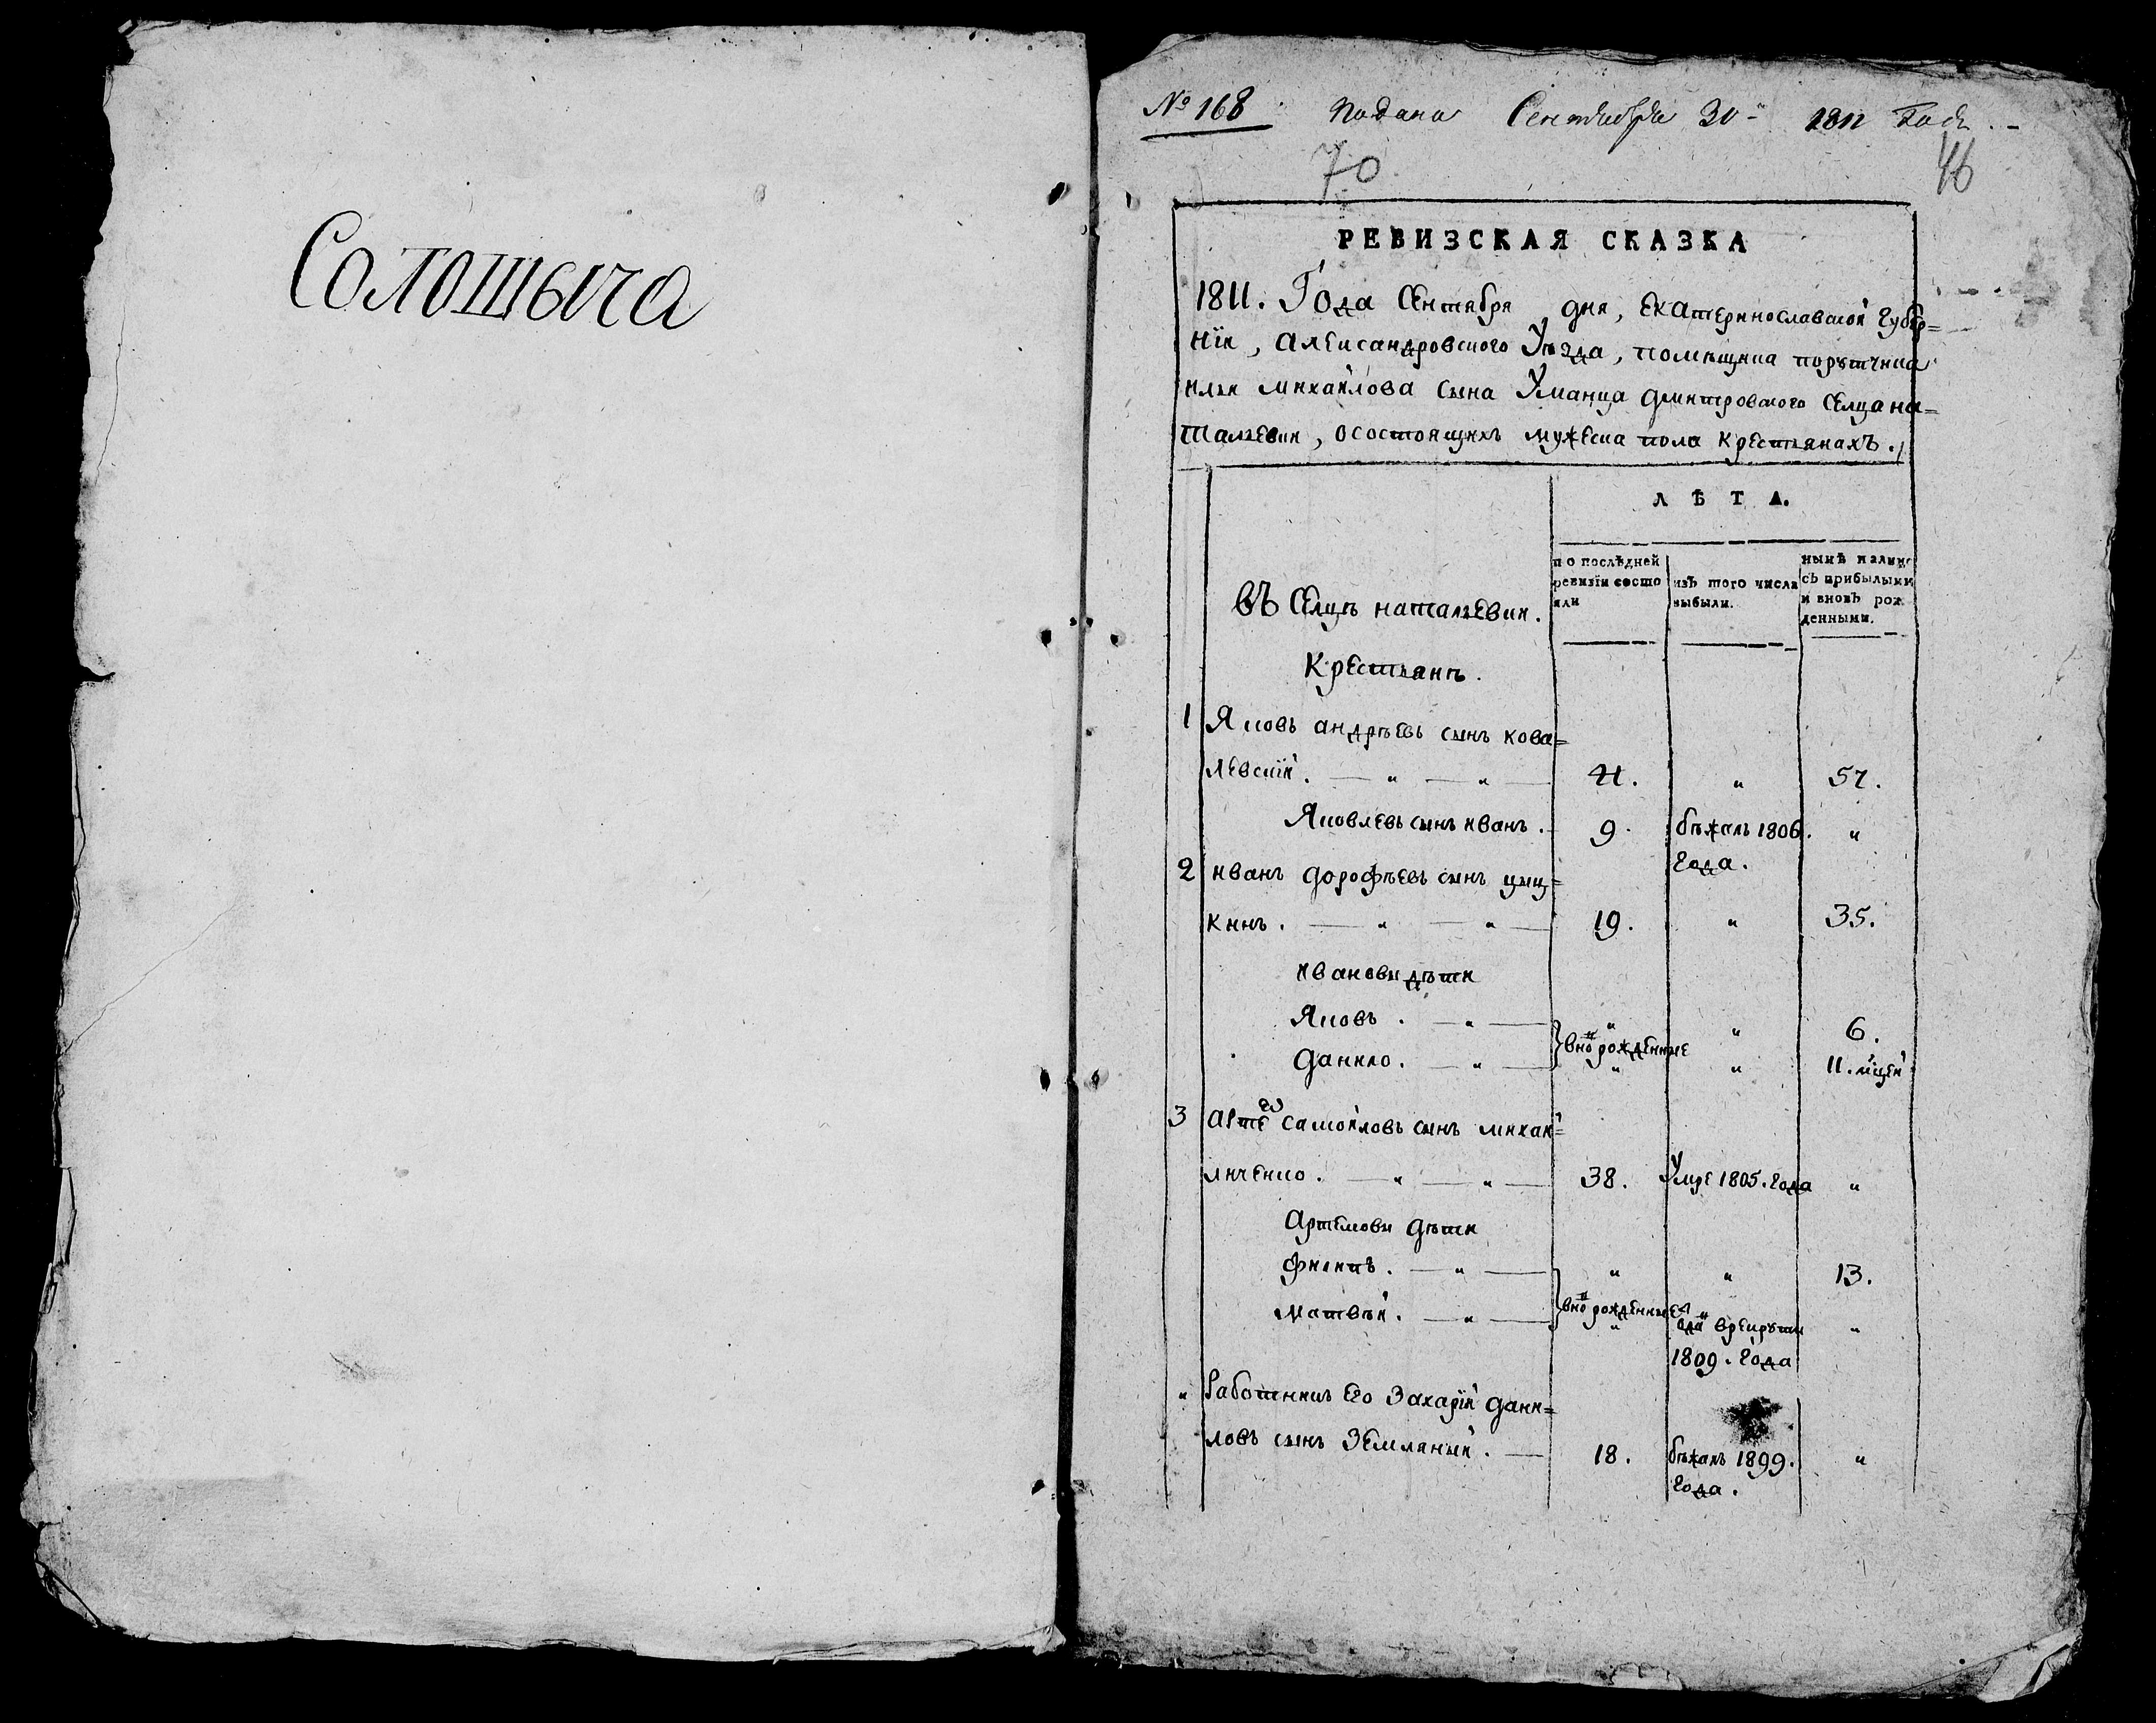 Солошыча
№ 168 Подана Сентября 30 1811 Года
70
46
РЕВИЗСКАЯ СКАЗКА
1811. Года Сентября дня, Екатеринославской Губер=
нїи, Александровского Уѣзда, помѣщика порутчика
ильи михайлова сына Уманца дмитровского Селца на=
талїевки, осостоящихъ мужеска пола крестьянахъ.
ЛѢТА.
по послѣдней
ревизїи состо
яли
изъ того числа
выбыли.
нынѣ налицо
съ прибылыми
и вновь рож
денными.
въ Селцѣ наталїевки.
Крестьянъ.
1 Яковъ андрѣевъ сынъ кова=
левскїй. 41. " 57.
Яковлевъ сынъ иванъ. 9. бѣжалъ 1806. "
года.
2 иванъ дорофѣевъ сынъ цыц=
кинъ. 19. " 35.
ивановы дѣти
Яковъ. " " 6.
вно рожденные
данило. " " 11. мцей
3 арте самойловъ сынъ михай=
личенко. 38. Умре 1805. года "
артемовы дѣти
филипъ. " " 13.
вно рожденные
матвѣй. " врекруты "
1809. года
" работникъ его Захарїй дани=
ловъ сынъ Земляный. 18. бѣжалъ 1899. "
года.